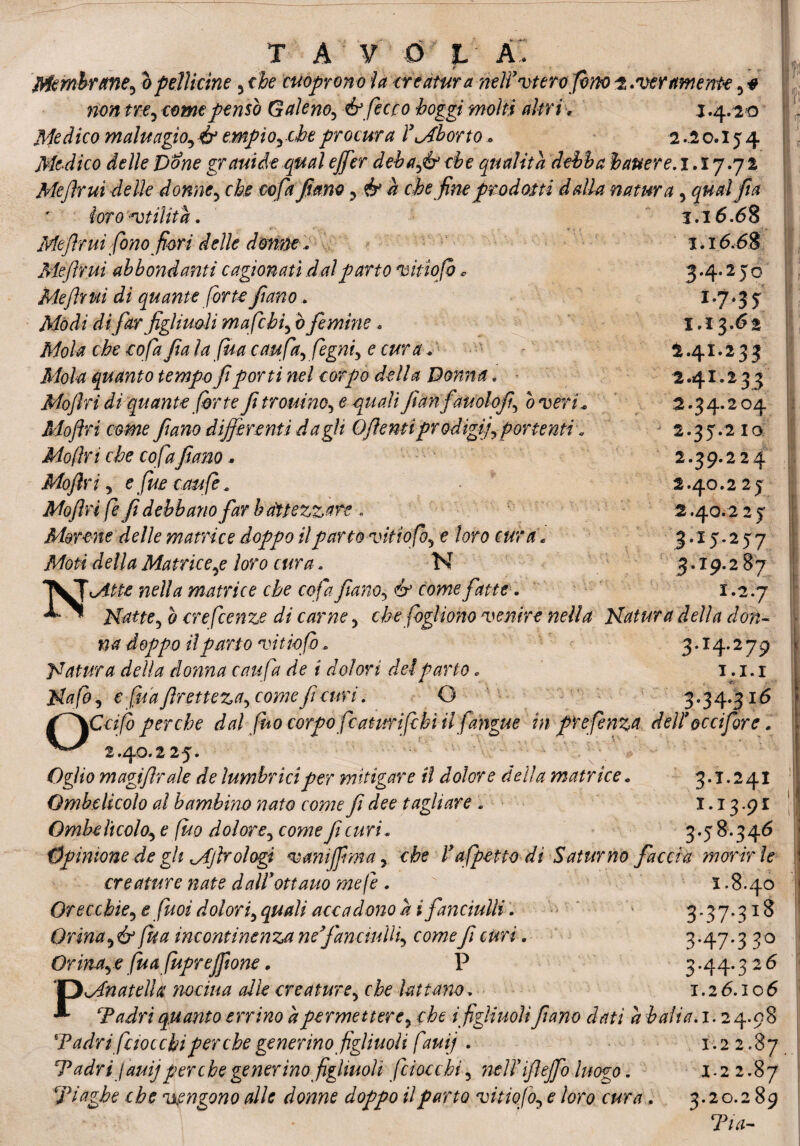 TAVOLA.
Membrane, ò pellicine, che cuoprono la creatura nell'vtero sono 2. veramente, &
non tre, come pensò Galeno, & secco hoggi molti altri. 1.4.20
Medico maluagio, & empio, che procura l'Aborto. 2.20.154
Medico delle Done grauide qual esser deba, & che qualità debba hauere. 1.17.72
Mestrui delle donne, che cosa siano, & à che fine prodotti dalla natura, qual sia
loro vtilità. 1.16.68
Mestrui sono fiori delle donne. 1.16.68
Mestrui abbondanti cagionati dal parto vitioso. 3.4.250
Mestrui di quante sorte siano. 1.7.35
Modi di far figliuoli maschi, ò femine. 1.13.62
Mola che cosa sia la sua causa, segni, e cura. 2.41.233
Mola quanto tempo si porti nel corpo della Donna. 2.41.233
Mostri di quante sorte si trouino, e quali sian fauolosi, ò veri. 2.34.204
Mostri come siano differenti dagli Ostenti prodigij, portenti. 2.35.210
Mostri che cosa siano. 2.39.224
Mostri, e sue cause. 2.40.225
Mostri se si debbano far battezzare. 2.40.225
Morene delle matrice doppo il parto vitioso, e loro cura. 3.15.257
Moti della Matrice, e loro cura. N 3.19.287
NAtte nella matrice che cosa siano, & come fatte. 1.2.7
Natte, ò crescenze di carne, che sogliono venire nella Natura della don-
na doppo il parto vitioso. 3.14.279
Natura della donna causa de i dolori del parto. 1.1.1
Naso, e sua stretteza, come si curi. O 3.34.316
OCciso perche dal suo corpo scaturischi il sangue in presenza dell'occisore.
2.40.225.
Oglio magistrale de lumbrici per mitigare il dolore della matrice. 3.1.241
Ombelicolo al bambino nato come si dee tagliare. 1.13.91
Ombelicolo, e suo dolore, come si curi. 3.58.346
Opinione de gli Astrologi vanissima, che l'aspetto di Saturno faccia morir le
creature nate dall'ottauo mese. 1.8.40
Orecchie, e suoi dolori, quali accadono à i fanciulli. 3.37.318
Orina, & sua incontinenza ne'fanciulli, come si curi. 3.47.330
Orina, e sua supressione. P 3.44.326
PAnatella nociua alle creature, che lattano. 1.26.106
Padri quanto errino à permettere, che i figliuoli siano dati à balia. 1.24.98
Padri sciocchi perche generino figliuoli sauij. 1.22.87
Padri sauij perche generino figliuoli sciocchi, nell'istesso luogo. 1.22.87
Piaghe che vengono alle donne doppo il parto vitioso, e loro cura. 3.20.289
Pia-